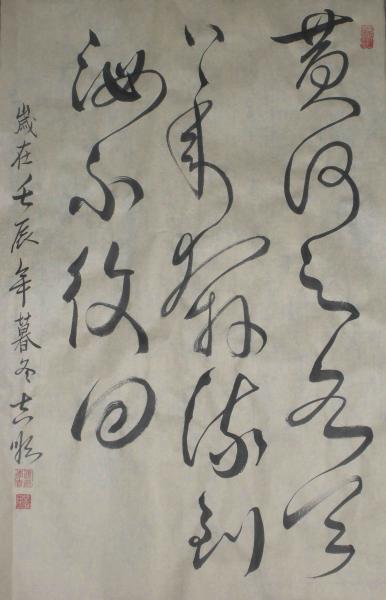 黄河之水天
上来奔流到
海不復回
歲在壬辰年暮冬